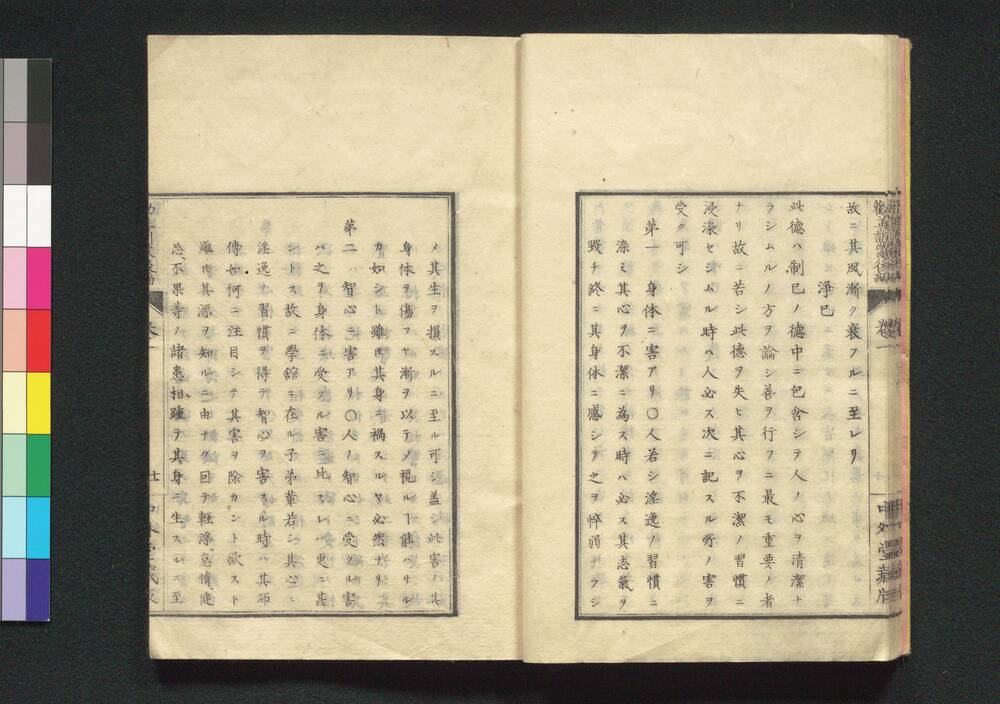 故ニ其風漸ク衰フルニ至レリ
浄己
此德ハ制己ノ德中ニ包含シテ人ノ心ヲ清潔ナ
ラシムルノ方ヲ論シ善ヲ行フニ最モ重要ノ者
ナリ故ニ若シ此德ヲ失ヒ其心ヲ不潔ノ習慣ニ
浸染セシムル時ハ人必ス次ニ記スル所ノ害ヲ
受ク可シ
第一 身体ニ害アリ〇人若シ淫逸ノ習慣ニ
染ミ其心ヲ不潔ニ為ス時ハ必ス其志氣ヲ
毀チ終ニ其身体ニ感シテ之ヲ悴弱ナラシ
メ其生ヲ損スルニ至ル可シ盖シ此害ノ其
身体ヲ傷フヤ漸ヲ以テメ視ルヿ能ハサル
カ如シト雖𪜈其身ニ禍スルヤ必然ナリ
第二 智心ニ害アリ〇人ノ智心ニ受クル害
ハ之ヲ身体ニ受クル害ニ比スレハ更ニ甚
シトス故ニ學舘ニ在ル子弟輩若シ其心ニ
淫逸ノ習慣ヲ得テ智心ヲ害スル時ハ其師
傅如何ニ注目シテ其害ヲ除カント欲スト
雖𪜈其源ヲ知ルニ由ナク因テ輕浮、怠惰健
忘、不果等ノ諸患相踵テ其身ニ生スルニ至
卷一
中外堂藏版
卷一
十一